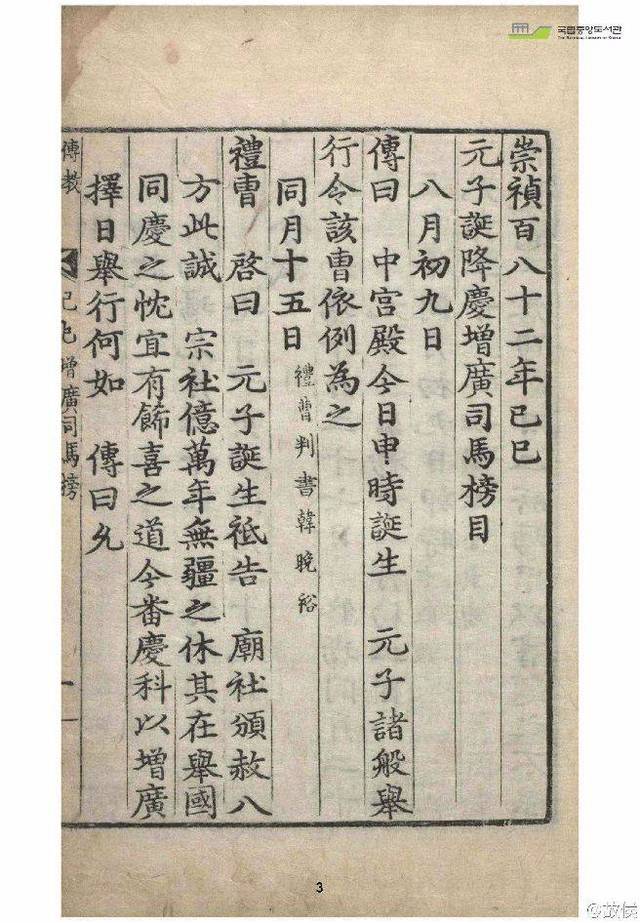 국립중앙도서관
THE NATIONAL LIBRARY OF KOREA
崇禎百八十二年己巳
元子誕降慶增廣司馬榜目
八月初九日
傳曰 中宮殿今日申時誕生 元子諸般舉
行令該曹依例為之
同月十五日 禮曹判書韓晚裕
禮曹 啓曰 元子誕生祗告 廟社頒赦八
方此誠 宗社億萬年無疆之休其在舉國
同慶之忱宜有餙喜之道今番慶科以增廣
擇日舉行何如 傳曰允
傳教 己巳增廣司馬榜 一
3
@故侯